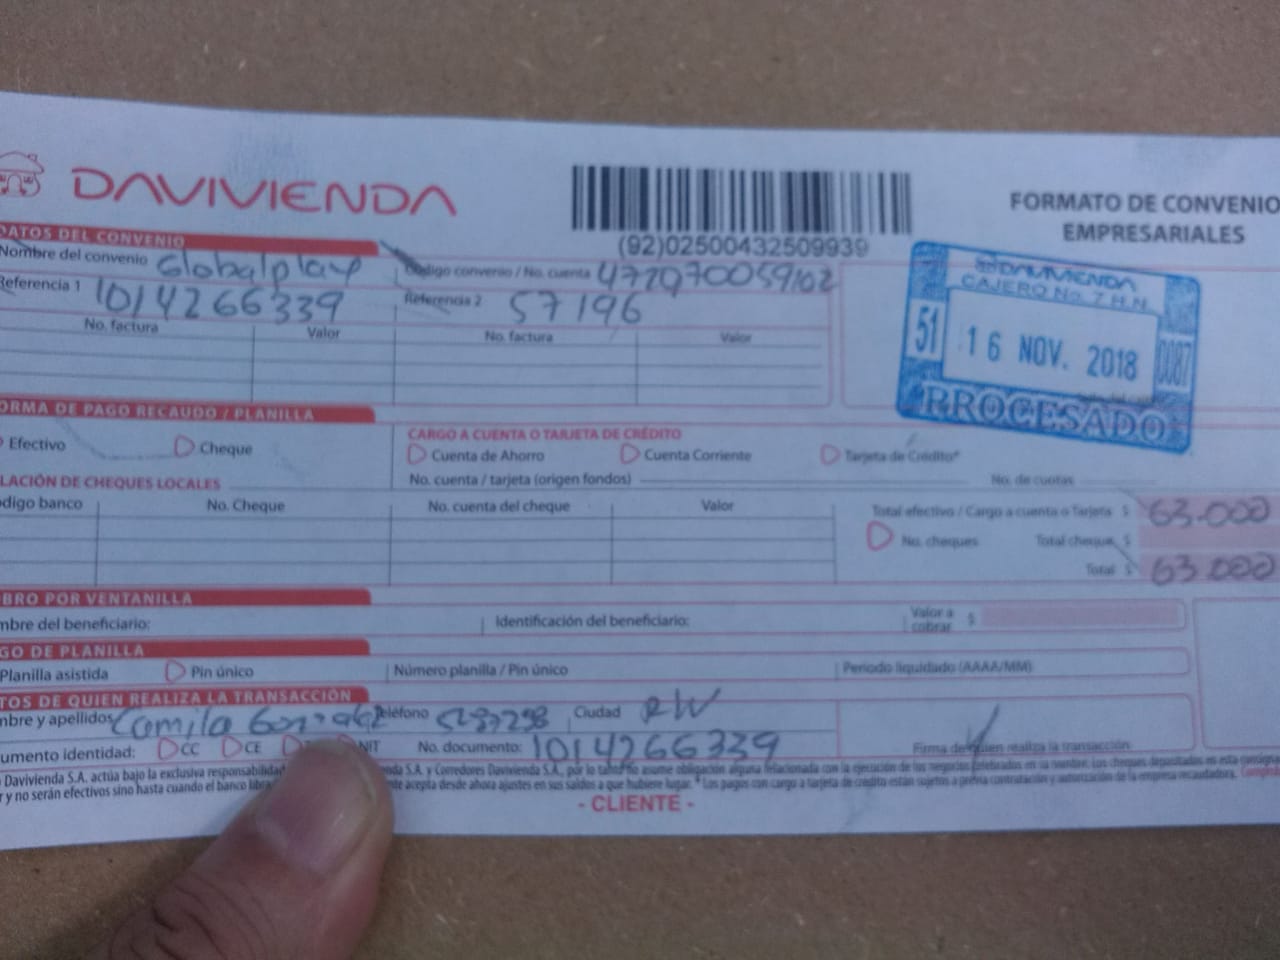 DAVIVIENDA
(92)02500432509939
FORMATO DE CONVENIO
EMPRESARIALES
DATOS DEL CONVENIO
Nombre del convenio Globalplay Código convenio / No. cuenta 472070059102
Referencia 1 1014266339 Referencia 2 57196
No. factura Valor No. factura Valor
DAVIVIENDA
CAJERO No. 7 H.N.
51 16 NOV. 2018 0087
PROCESADO
ORMA DE PAGO RECAUDO / PLANILLA
Efectivo Cheque
CARGO A CUENTA O TARJETA DE CRÉDITO
Cuenta de Ahorro Cuenta Corriente Tarjeta de Crédito*
No. cuenta / tarjeta (origen fondos) No. de cuotas
LACIÓN DE CHEQUES LOCALES
digo banco No. Cheque No. cuenta del cheque Valor
Total efectivo / Cargo a cuenta o Tarjeta $ 63.000
No. cheques Total cheque $
Total $ 63.000
BRO POR VENTANILLA
mbre del beneficiario: Identificación del beneficiario: Valor a cobrar $
GO DE PLANILLA
Planilla asistida Pin único Número planilla / Pin único Periodo liquidado (AAAA/MM)
TOS DE QUIEN REALIZA LA TRANSACCIÓN
mbre y apellidos Camila Teléfono 5287298 Ciudad
umento identidad: CC CE NIT No. documento: 1014266339 Firma de quien realiza la transacción
Davivienda S.A. actúa bajo la exclusiva responsabilidad nda S.A. y Corredores Davivienda S.A., por lo tanto no asume obligación alguna relacionada con la ejecución de los negocios celebrados en su nombre. Los cheques depositados en esta
r y no serán efectivos sino hasta cuando el banco te acepta desde ahora ajustes en sus saldos a que hubiere lugar. * Los pagos con cargo a tarjeta de crédito están sujetos a previa contratación y autorización de la empresa recaudadora.
- CLIENTE -